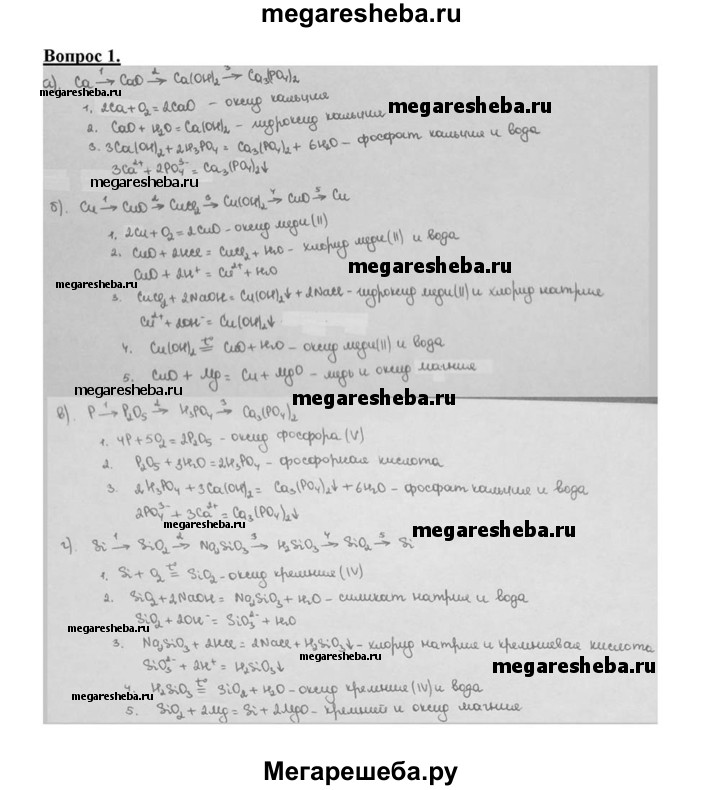 megaresheba.ru
Вопрос 1.
а) Ca →¹ CaO →² Ca(OH)₂ →³ Ca₃(PO₄)₂
megaresheba.ru
1. 2Ca + O₂ = 2CaO - оксид кальция
megaresheba.ru
2. CaO + H₂O = Ca(OH)₂ - гидроксид кальция
3. 3Ca(OH)₂ + 2H₃PO₄ = Ca₃(PO₄)₂ + 6H₂O - фосфат кальция и вода
3Ca²⁺ + 2PO₄³⁻ = Ca₃(PO₄)₂↓
megaresheba.ru
б). Cu →¹ CuO →² CuCl₂ →³ Cu(OH)₂ →⁴ CuO →⁵ Cu
1. 2Cu + O₂ = 2CuO - оксид меди (II)
2. CuO + 2HCl = CuCl₂ + H₂O - хлорид меди (II) и вода
CuO + 2H⁺ = Cu²⁺ + H₂O
megaresheba.ru
megaresheba.ru
3. CuCl₂ + 2NaOH = Cu(OH)₂↓ + 2NaCl - гидроксид меди (II) и хлорид натрия
Cu²⁺ + 2OH⁻ = Cu(OH)₂↓
megaresheba.ru
4. Cu(OH)₂ =t° CuO + H₂O - оксид меди (II) и вода
5. CuO + Mg = Cu + MgO - медь и оксид магния
megaresheba.ru
megaresheba.ru
в) P →¹ P₂O₅ →² H₃PO₄ →³ Ca₃(PO₄)₂
1. 4P + 5O₂ = 2P₂O₅ - оксид фосфора (V)
2. P₂O₅ + 3H₂O = 2H₃PO₄ - фосфорная кислота
3. 2H₃PO₄ + 3Ca(OH)₂ = Ca₃(PO₄)₂↓ + 6H₂O - фосфат кальция и вода
2PO₄³⁻ + 3Ca²⁺ = Ca₃(PO₄)₂↓
megaresheba.ru
megaresheba.ru
г). Si →¹ SiO₂ →² Na₂SiO₃ →³ H₂SiO₃ →⁴ SiO₂ →⁵ Si
1. Si + O₂ =t° SiO₂ - оксид кремния (IV)
2. SiO₂ + 2NaOH = Na₂SiO₃ + H₂O - силикат натрия и вода
SiO₂ + 2OH⁻ = SiO₃²⁻ + H₂O
megaresheba.ru
3. Na₂SiO₃ + 2HCl = 2NaCl + H₂SiO₃↓ - хлорид натрия и кремниевая кислота
megaresheba.ru
SiO₃²⁻ + 2H⁺ = H₂SiO₃↓
megaresheba.ru
4. H₂SiO₃ =t° SiO₂ + H₂O - оксид кремния (IV) и вода
megaresheba.ru
5. SiO₂ + 2Mg = Si + 2MgO - кремний и оксид магния
Мегарешеба.ру